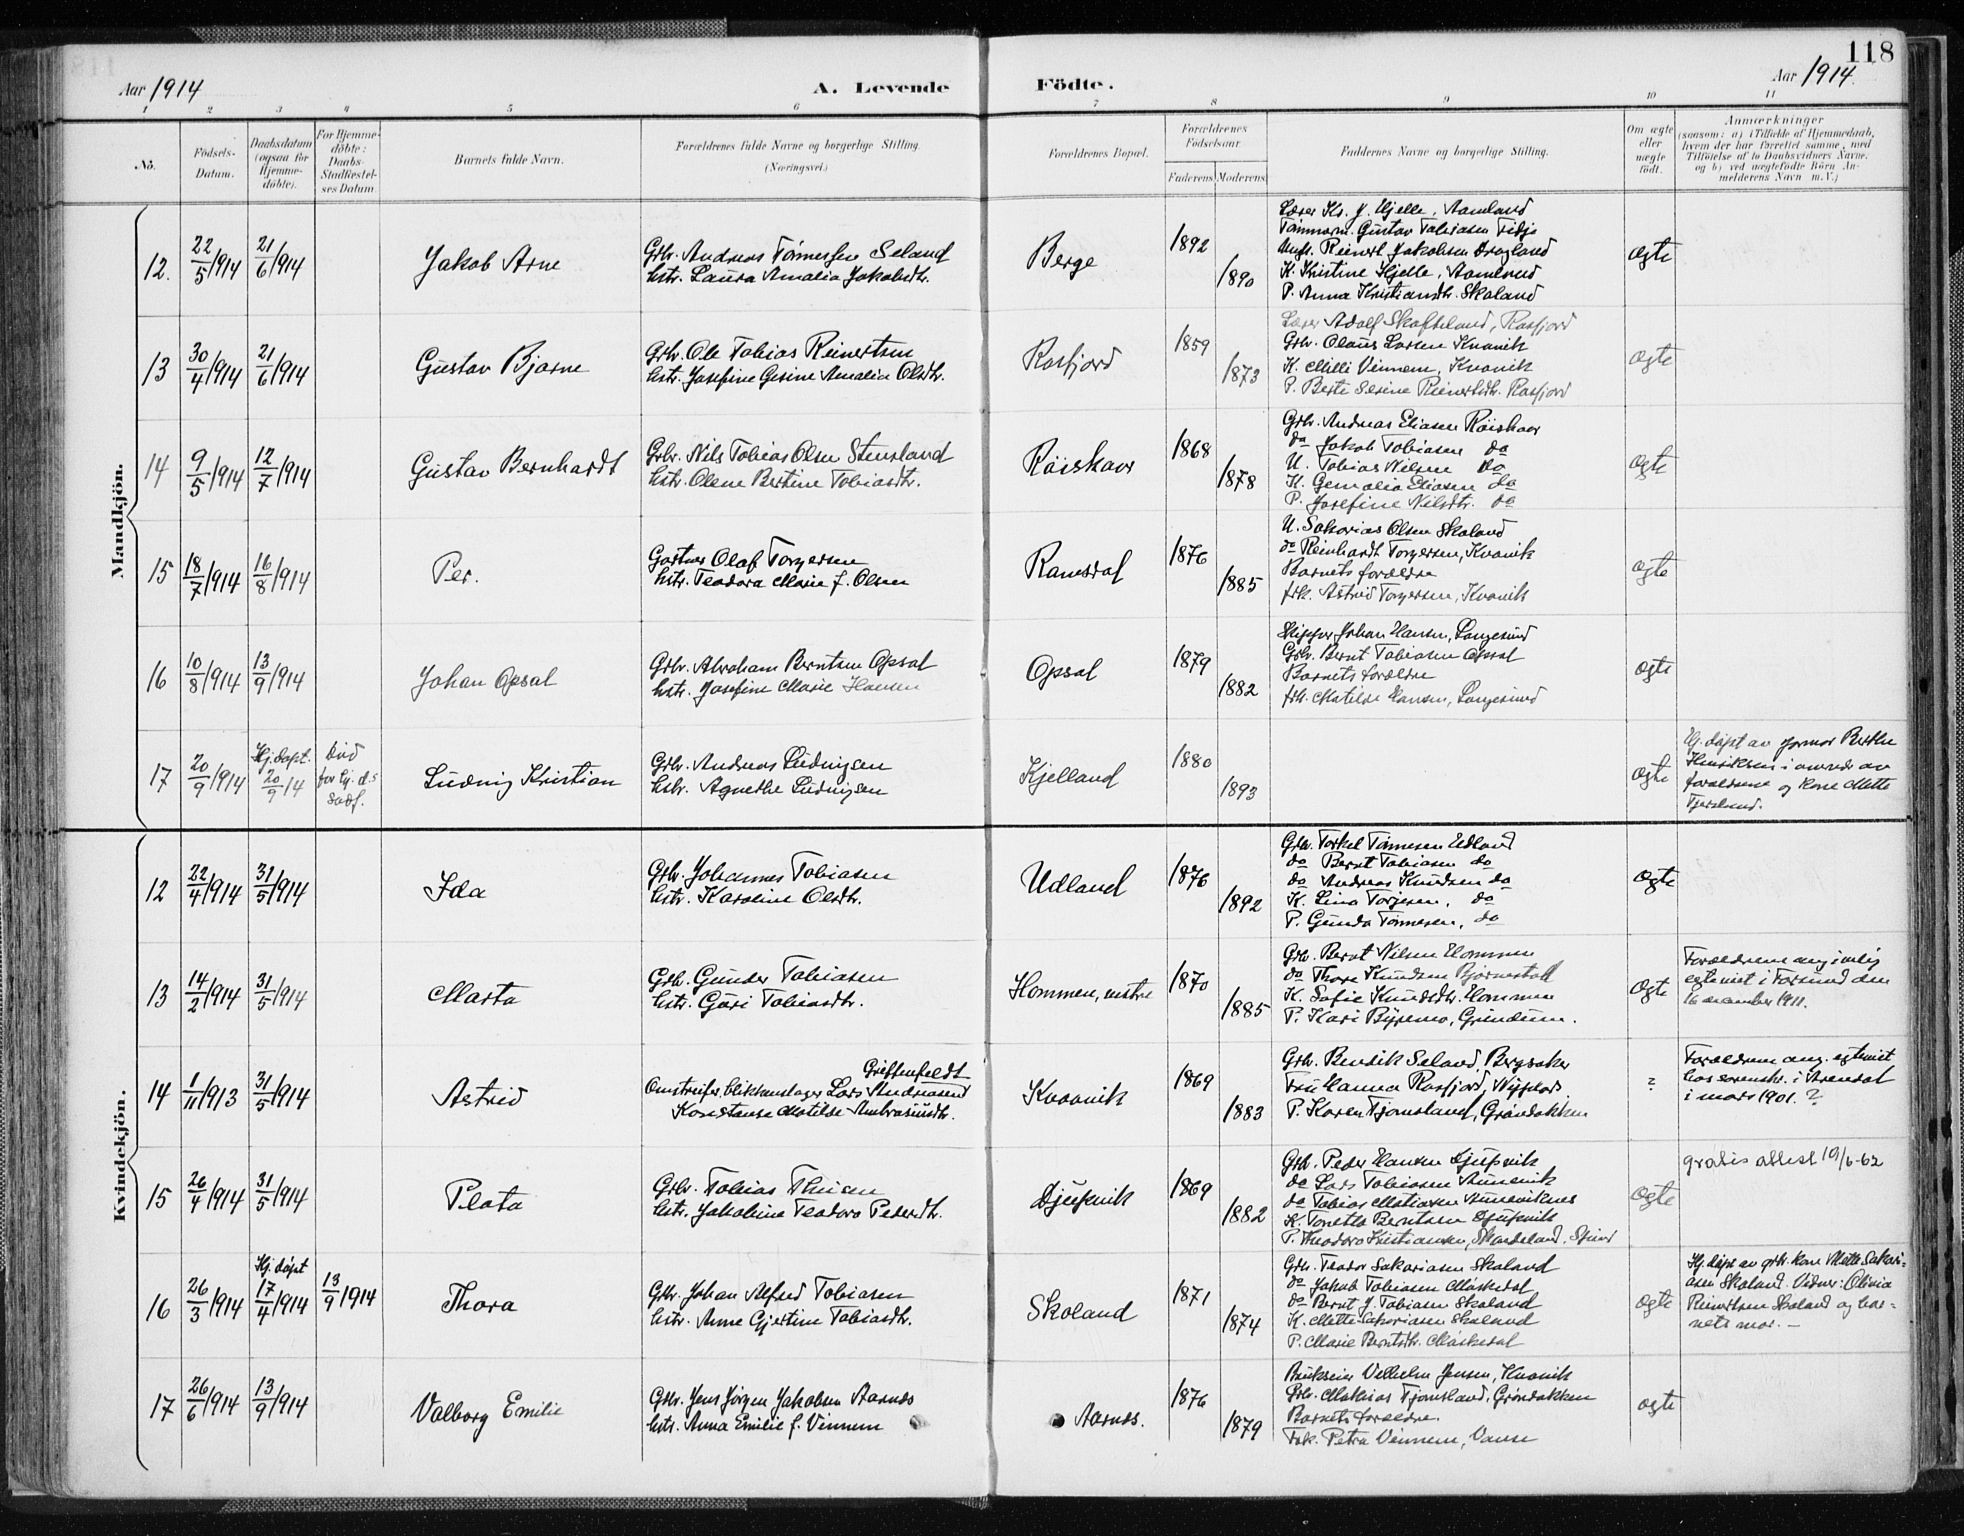 118
Aar 1914
A. Levende
Födte.
Aar 1914.
1 2 3 4 5 6 7 8 9 10 11
No.
Födsels-
Datum.
Daabsdatum
(ogsaa for
Hjemme-
døbte).
For Hjemme-
döbte:
Daabs-
Stadfæstel-
ses Datum
Barnets fulde Navn.
Forældrenes fulde Navne og borgerlige Stilling.
(Næringsvei.)
Forældrenes Bopæl.
Forældrenes
Fødselsaar.
Faderens Moderens
Faddernes Navne og borgerlige Stilling.
Om ægte
eller
uægte
födt.
Anmærkninger
(saasom: a) i Tilfælde af Hjemmedaab,
hvem der har forrettet samme, med
Tilföielse af to Daabsvidners Navne,
og b) ved uægtefödte Börn An-
melderens Navn m. V.)
Mandkjön.
12. 22/5 1914 21/6 1914
Jakob Arne
Grbr. Andreas Tönnessen Seland
hstr. Laura Amalia Jakobsdtr.
Berge
1892
1890
Lærer Kr. J. Hjelle, Aamland
Gustav Tobiassen Fidje
Ungk. Reinert Jakobsen Dragland
K. Kristine Hjelle, Aamland
P. Anna Kristiansdtr. Skoland
ægte
13 30/4 1914 21/6 1914
Gustav Bjarne
Grbr. Ole Tobias Reinertsen
hstr. Josefine Gesine Amalia Olsdtr.
Rosfjord
1859
1873
Lærer Adolf Skofteland, Rosfjord
Grbr. Olaus Larsen Kvavik
K. Milli Vennem, Kvavik
P. Berte Serine Reinertsdtr. Rosfjord
ægte
14 9/5 1914 12/7 1914
Gustav Bernhardt
Grbr. Nils Tobias Olsen Stensland
hstr. Olene Bertine Tobiasdtr.
Röiskaar
1868
1878
Grbr. Andreas Eliasen Röiskaar
do Jakob Tobiasen do
U. Tobias Nilsen do
K. Eliasen do
P. Josefine Nilsdtr. do
ægte
15 18/7 1914 16/8 1914
Per.
Gartner Olaf Torgersen
hstr. Teodora Marie f. Olsen
Ramsdal
1876
1885
U. Sakarias Olsen Skoland
do Reinhardt Torgersen, Kvavik
Barnets forældre
frk. Astrid Torgersen, Kvavik
ægte
16 10/8 1914 13/9 1914
Johan Opsal
Grbr. Abraham Berntsen Opsal
hstr. Josefine Marie Hansen
Opsal
1879
1882
Skipper Johan Hansen, Langesund
Grbr. Bernt Tobiasen Opsal
Barnets forældre
frk. Matilde Hansen, Langesund
ægte
17 20/9 1914
Hj. døpt.
20/9 14
Död
før hj. d.s
stadf.
Ludvig Kristian
Grbr. Andreas Ludvigsen
hstr. Agnethe Ludvigsen
Kjelland
1880
1893
ægte
Hj. döpt av jormor Berthe
Henriksen i anvær av
foraldrene og kone Mette
Kvindekjön.
12 22/4 1914 31/5 1914
Ida
Grbr. Johannes Tobiasen
hstr. Karoline Olsdtr.
Udland
1876
1892
Grbr. Torkel Tönnesen Udland
do Bernt Tobiasen do
do Andreas Knudsen do
K. Lina Torjesen, do
P. Gunda Tönnesen, do
ægte
13 14/2 1914 31/5 1914
Marta
Grbr. Gunder Tobiasen
hstr. Guri Tobiasdtr.
Hommen, vestre
1870
1885
Grbr. Bernt Nilsen Hommen
do Thore Knudsen Bjørnestøl
K. Sofie Knudsdtr. Hommen
P. Kari Byremo, Grindem.
ægte
Forældrene angivelig
egteviet i Farsund den
16 december 1911.
14 1/11 1913 31/5 1914
Astrid
Griffenfeldt
Omstreifer, blikkenslager Lars Andreasen
Konstanse Matilde Ambrosiusdtr.
Kvavik
1869
1883
Grbr. Bendik Seland, Bergsaker
Fru Hanna Rosfjord,
P. Karen Tjomsland, Gröndokken
?
Forældrene ang. egteviet
hos sorenskr. i Arendal
i mars 1901. ?
15 26/4 1914 31/5 1914
Plata
Grbr. Tobias Thisen
hstr. Jakobine Teodora Pedersdtr.
Djupvik
1869
1882
Grbr. Peder Hansen Djupvik
do Lars Tobiasen
do Tobias Matiasen
K. Tonette Berntsen Djupvik
P. Theodora Kristiansen,
ægte
gratis attest 19/6-62
16 26/3 1914
Hj. döpt
17/4 1914 13/9 1914
Thora
Grbr. Johan Alfred Tobiasen
hstr. Anne Gjertine Tobiasdtr.
Skoland
1871
1874
Grbr. Teodor Sakariasen Skoland
do Jakob Tobiasen Møskedal
do Bernt J. Tobiasen Skoland
K. Mette Sakariasen Skoland
P. Marie Berntsdtr. Møskedal
ægte
Hj. døpt av grbr. kone Mette Sakari-
asen Skoland. Vidner: Olivia
Reinertsen Skoland og bar-
nets mor. —
17 26/6 1914 13/9 1914
Valborg Emilie
Grbr. Jens Jörgen Jakobsen Aarnes
hstr. Anna Emilie f. Vennem
Aarnes.
1876
1879
Brukseier Vilhelm Jensen, Kvavik
Grbr. Mathias Tjomsland, Gröndokken
Barnets forældre.
Frk. Petra Vennem, Vanse
ægte